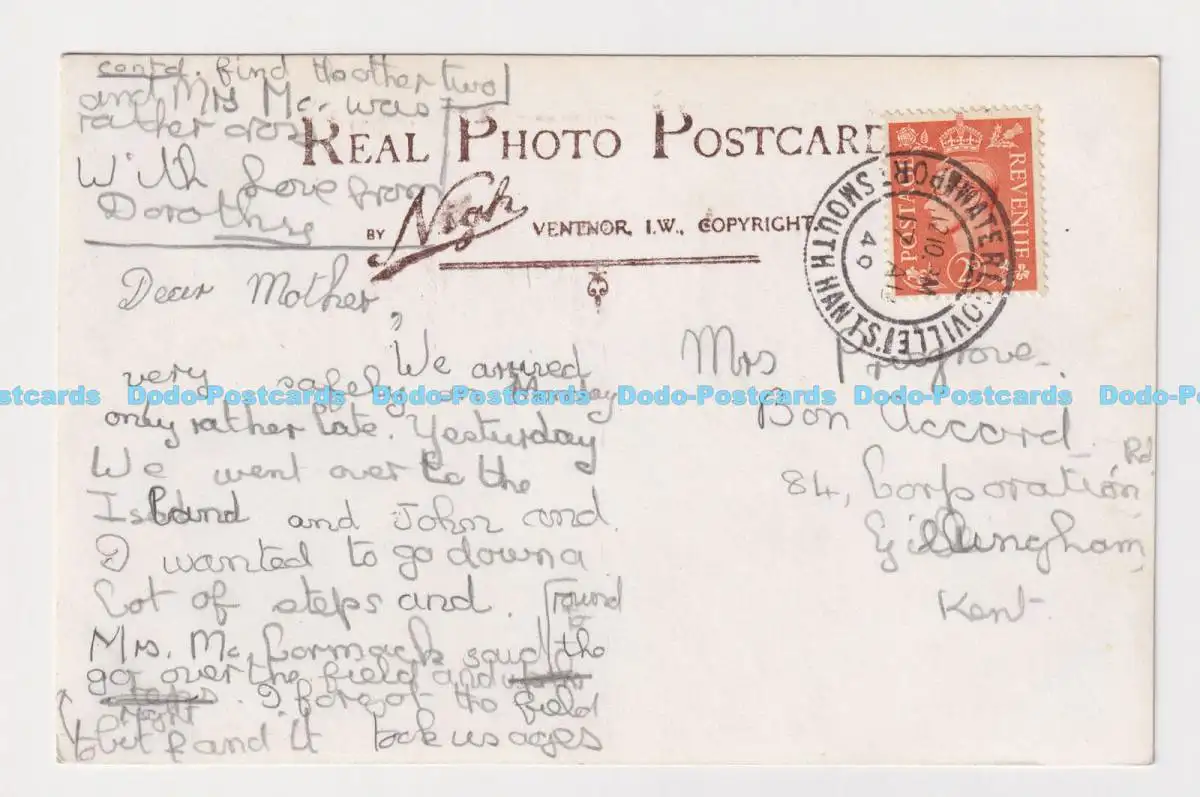 contd. find the other two
and Mrs Mc. was
rather cross
With Love from
Dorothy
REAL PHOTO POSTCARD
BY Nigh VENTNOR, I.W., COPYRIGHT.
POSTAGE REVENUE
WATERLOOVILLE
PORTSMOUTH HANTS
Dear Mother,
We arrived
very safely on Monday
only rather late. Yesturday
We went over to the
Island and John and
I wanted to go down a
Lot of steps and
Mrs. Mc. Cormack said
round
the
go over the field and
right
I forgot the field
but and it took us ages
Mrs
Bon Accord
84, Corporation Rd
Gillingham,
Kent
Dodo-Postcards Dodo-Postcards Dodo-Postcards Dodo-Postcards Dodo-Postcards